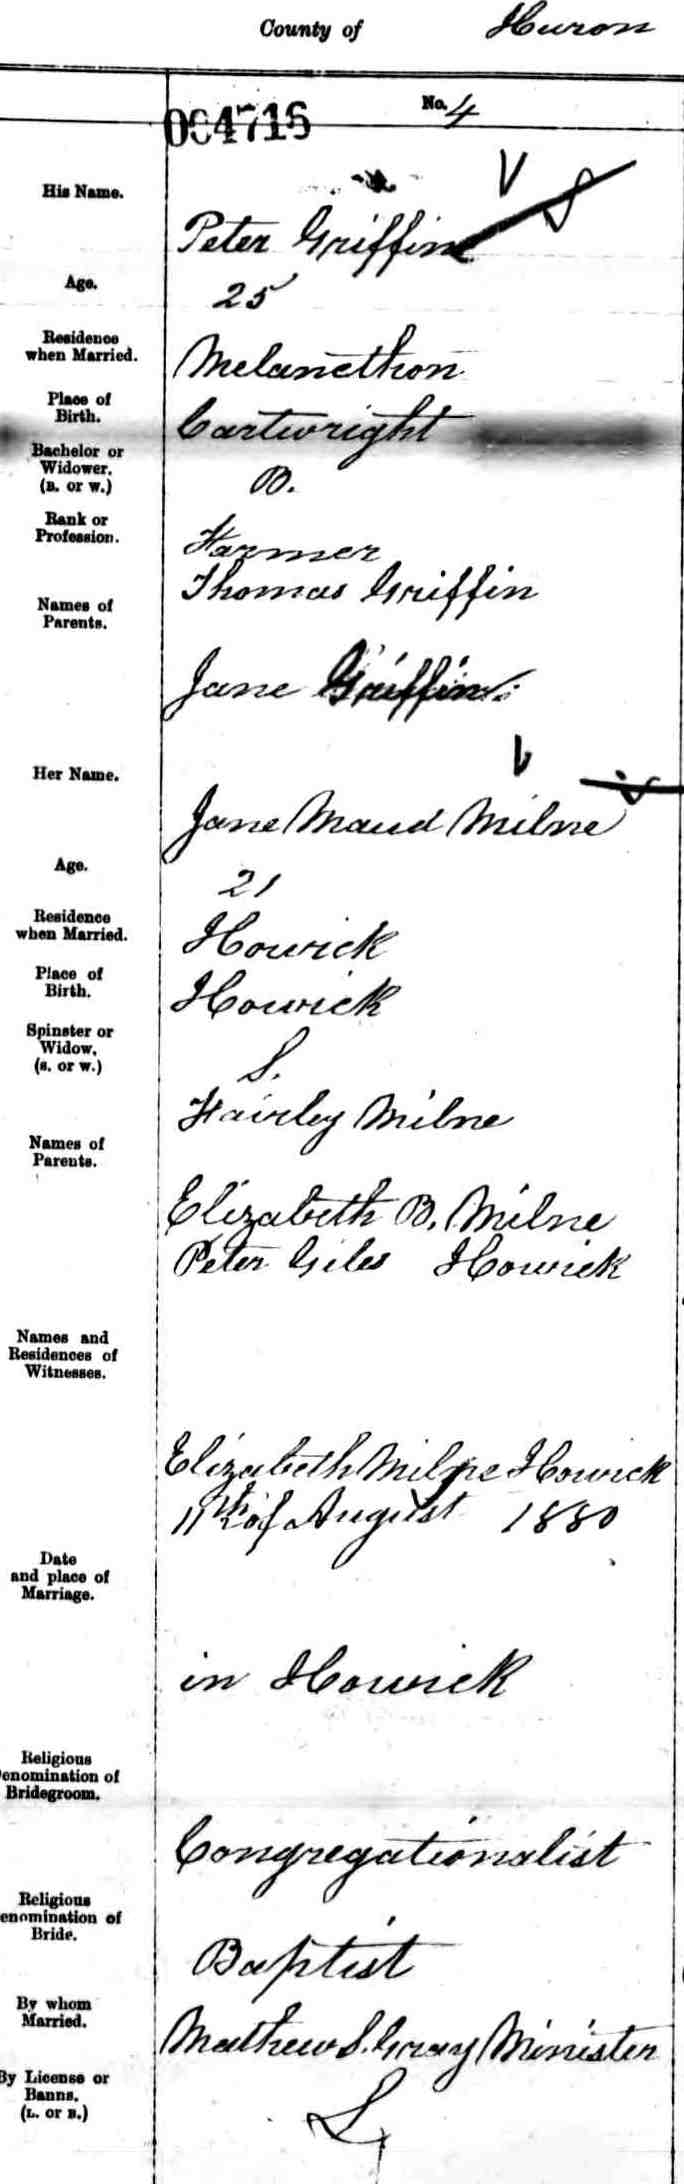 County of Huron
004716 No. 4
His Name.
Peter Griffin
Age.
25
Residence
when Married.
Melancthon
Place of
Birth.
Cartwright
Bachelor or
Widower.
(B. or W.)
B.
Rank or
Profession.
Farmer
Thomas Griffin
Names of
Parents.
Jane Griffin
Her Name.
Jane Maud Milne
Age.
21
Residence
when Married.
Howick
Place of
Birth.
Howick
Spinster or
Widow,
(S. or W.)
S.
Fairley Milne
Names of
Parents.
Elizabeth B. Milne
Peter Giles Howick
Names and
Residences of
Witnesses.
Elizabeth Milne Howick
11th of August 1880
Date
and place of
Marriage.
in Howick
Religious
enomination of
Bridegroom.
Congregationalist
Religious
enomination of
Bride.
Baptist
By whom
Married.
Mathew S. Gray Minister
By License or
Banns.
(L. or B.)
L